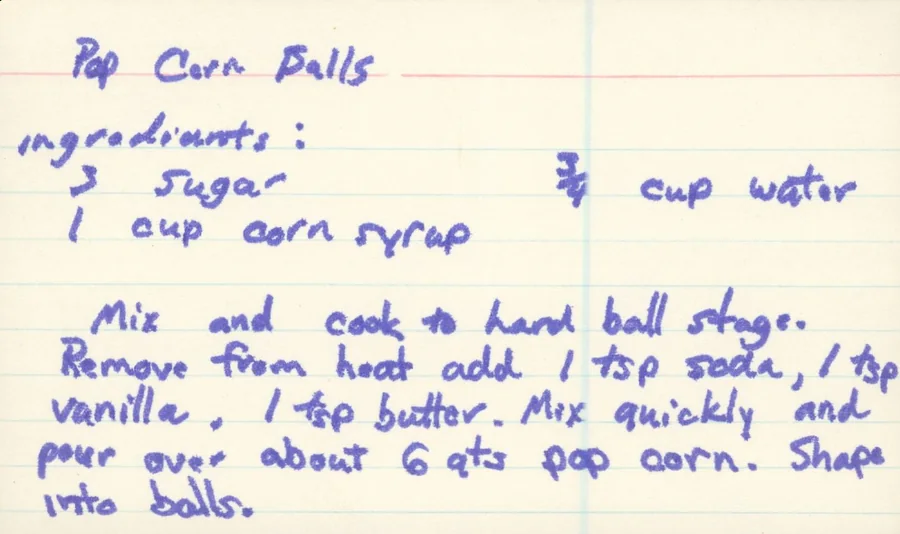 Pop Corn Balls
ingrediants :
3 sugar 3/4 cup water
1 cup corn syrup
Mix and cook to hard ball stage.
Remove from heat add 1 tsp soda, 1 tsp
vanilla, 1 tsp butter. Mix quickly and
pour over about 6 qts pop corn. Shape
into balls.